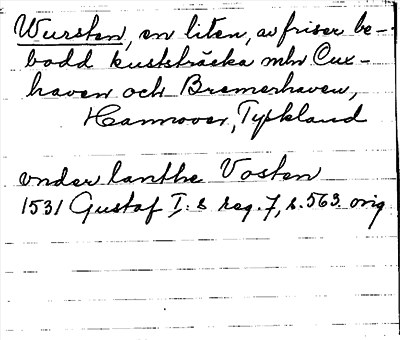 Wursten, en liten, av friser be-
bodd kuststräcka mln Cux-
haven och Bremerhaven,
Hannover, Tyskland
vnder lanthe Vosten
1531 Gustaf I:s reg. 7, s. 563. orig